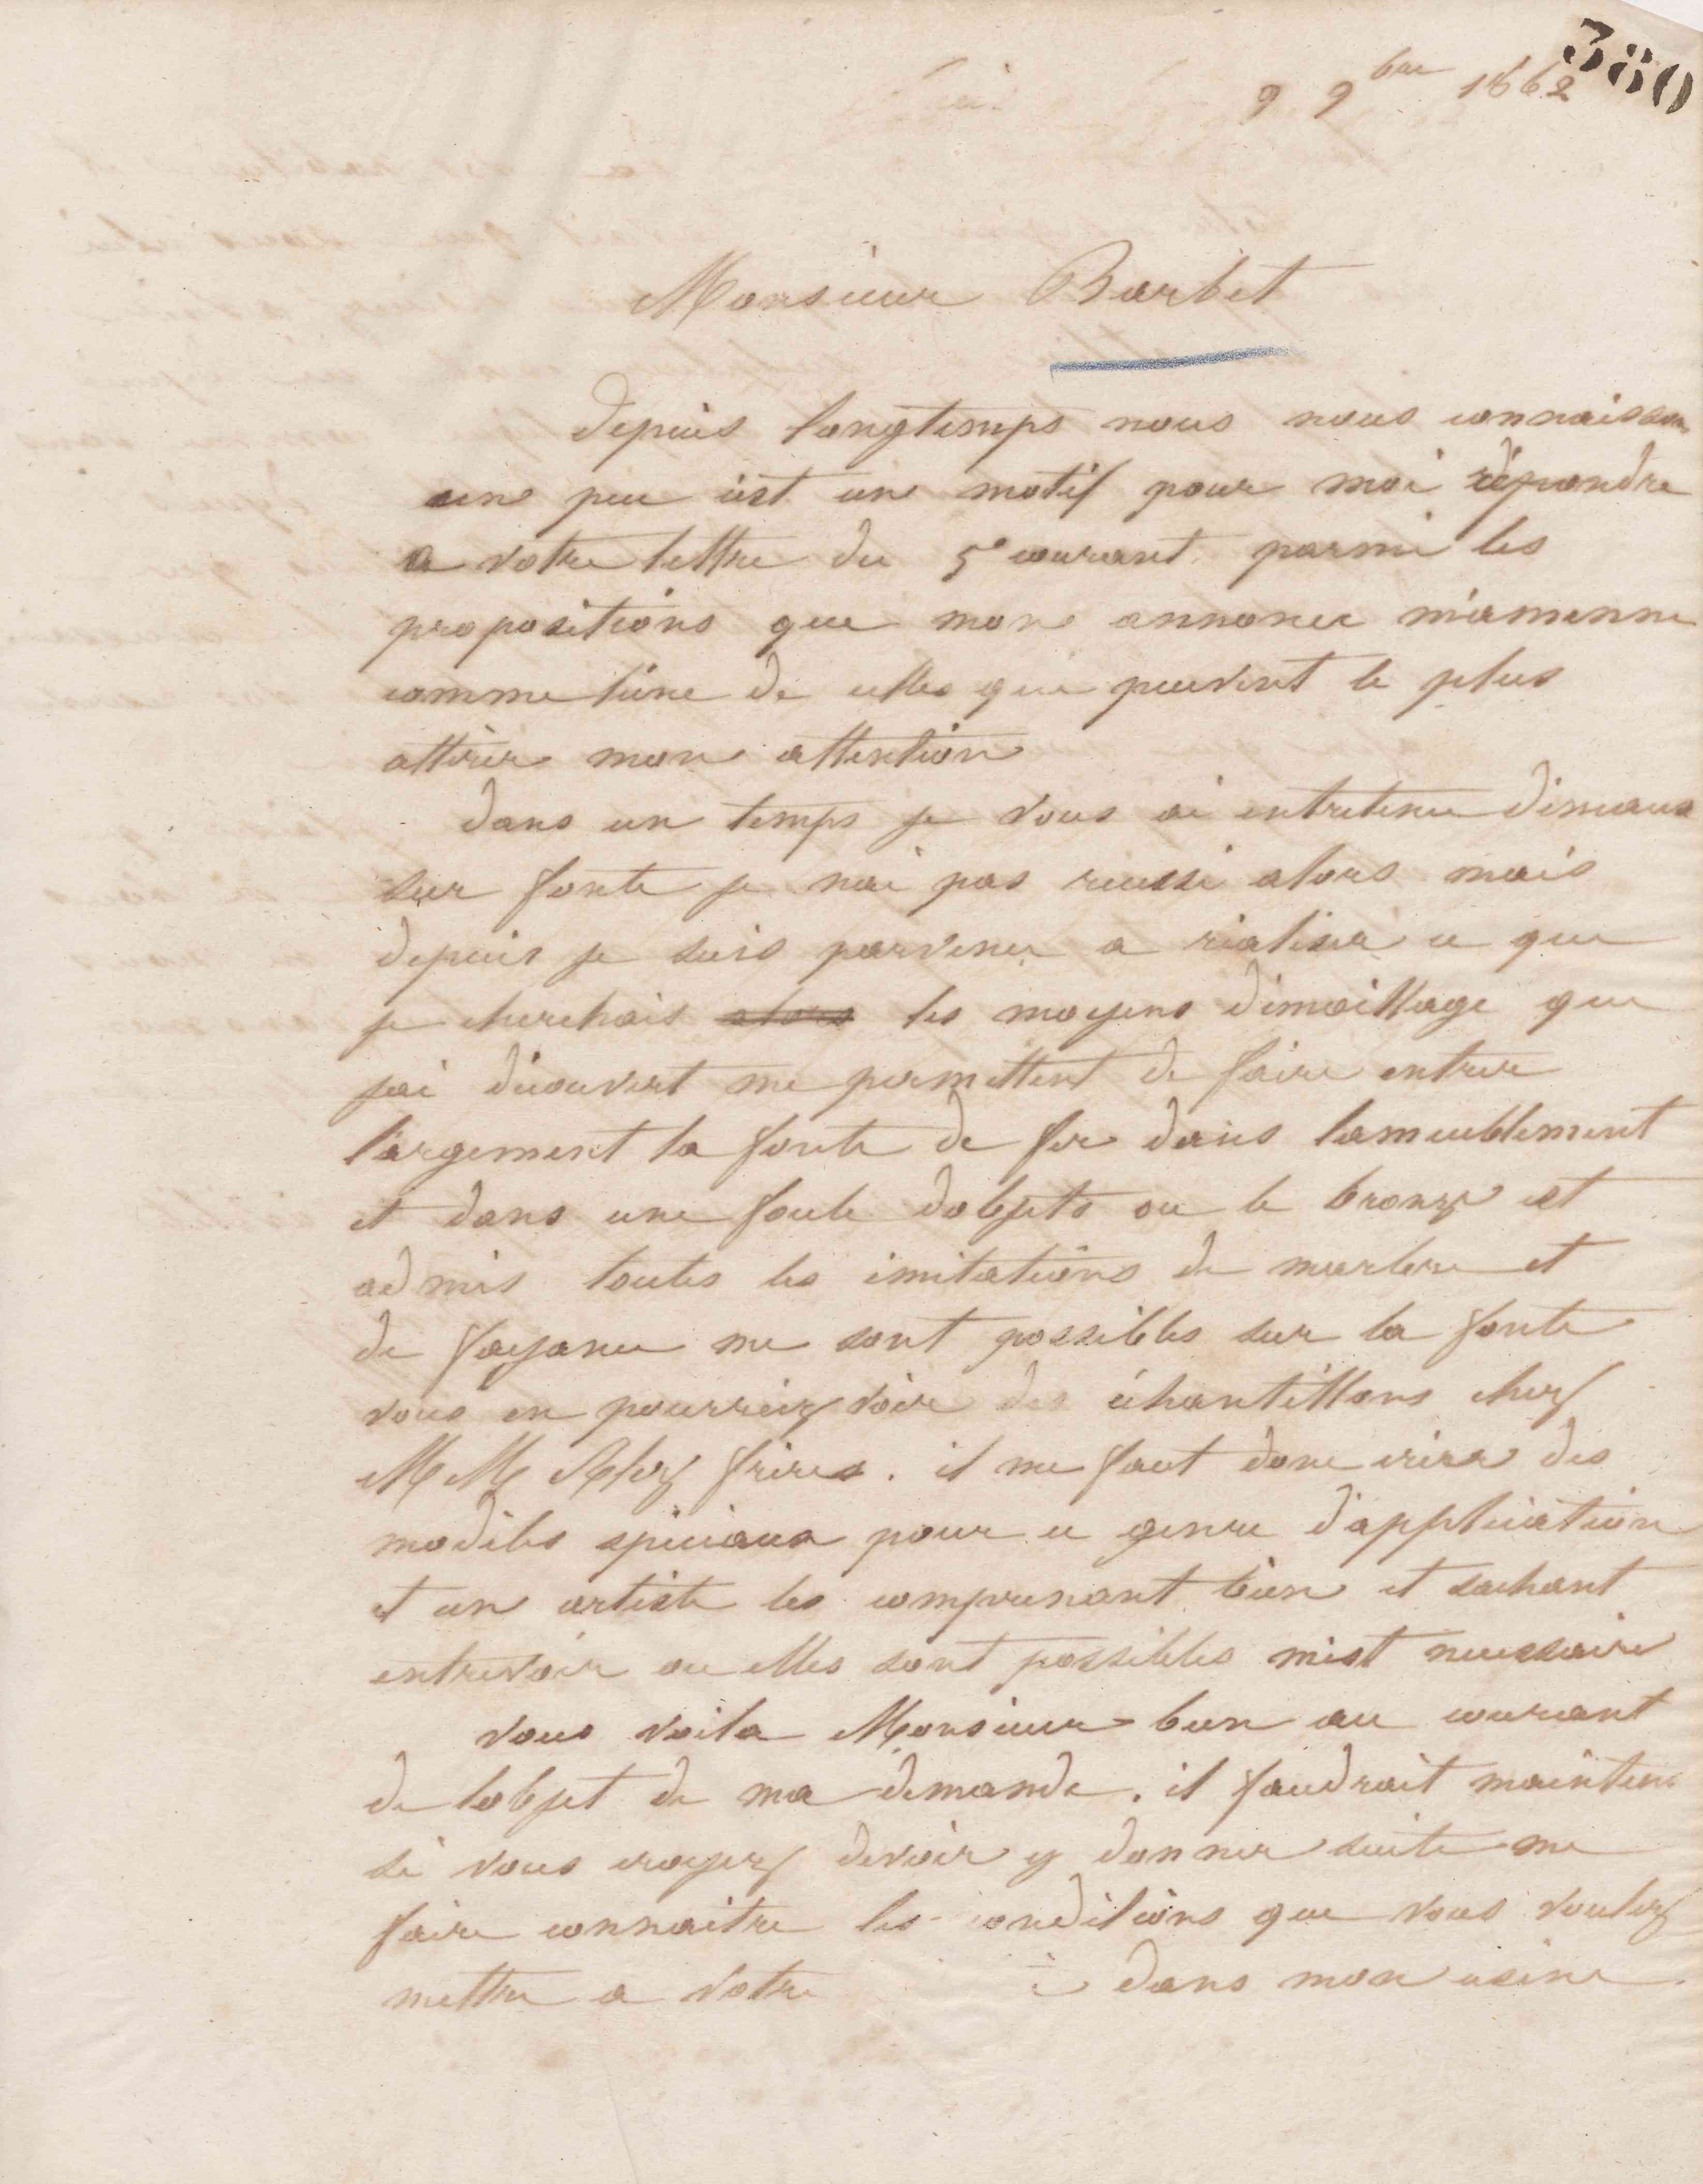 380
9 9bre 1862
Monsieur Barbet
depuis longtemps nous nous connaissons
un peu c'est un motif pour moi répondre
a votre lettre du 5 courant parmi les
propositions que mon annonce m'amenne
comme l'une de celles qui peuvent le plus
attirer mon attention
dans un temps je vous ai entretenu d'emaux
sur fonte je nai pas reussi alors mais
depuis je suis parvenu a réaliser ce que
je cherchais alors les moyens d'émaillage que
jai découvert me permettent de faire entrer
largement la fonte de fer dans lameublement
et dans une foule dobjets ou le bronze est
admis toutes les imitations de marbre et
de fayance me sont possibles sur la fonte
vous en pourriez voir des échantillons chez
MM frères. il me faut donc créer des
modèles spéciaux pour ce genre d'application
et un artiste les comprenant bien et sachant
entrevoir ou elles sont possibles m'est necessaire
vous voila Monsieur bien au courant
de lobjet de ma demande. il faudrait mainten
si vous croyez devoir y donner suite me
faire connaitre les conditions que vous voulez
mettre a votre dans mon usine.